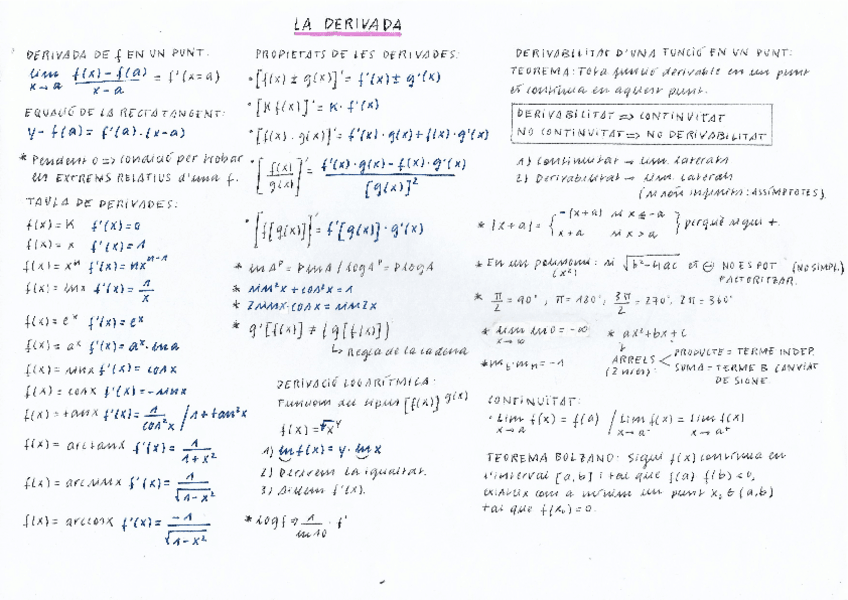 LA DERIVADA
DERIVADA DE f EN UN PUNT:
lim x→a f(x)-f(a) / x-a = f'(x=a)
EQUACIÓ DE LA RECTA TANGENT:
y-f(a)=f'(a)·(x-a)
* Pendent 0 => condició per trobar
els EXTREMS RELATIUS d'una f.
TAULA DE DERIVADES:
f(x)=K f'(x)=0
f(x)=x f'(x)=1
f(x)=xⁿ f'(x)=nxⁿ⁻¹
f(x)=lnx f'(x)=1/x
f(x)=eˣ f'(x)=eˣ
f(x)=aˣ f'(x)=aˣ·lna
f(x)=sinx f'(x)=cosx
f(x)=cosx f'(x)=-sinx
f(x)=tanx f'(x)=1/cos²x / 1+tan²x
f(x)=arctanx f'(x)=1/1+x²
f(x)=arcsinx f'(x)=1/√1-x²
f(x)=arccosx f'(x)=-1/√1-x²
PROPIETATS DE LES DERIVADES:
·[f(x)±g(x)]'=f'(x)±g'(x)
·[Kf(x)]'=K·f'(x)
·[f(x)·g(x)]'=f'(x)·g(x)+f(x)·g'(x)
·[f(x)/g(x)]'=f'(x)·g(x)-f(x)·g'(x)/[g(x)]²
·[f[g(x)]]'=f'[g(x)]·g'(x)
* lnAᴾ=PlnA/logAᴾ=PlogA
* sin²x+cos²x=1
* 2sinx·cosx=sin2x
* g'[f(x)]≠(g[f(x)])
↳ Regla de la cadena
DERIVACIÓ LOGARÍTMICA:
Funcions del tipus [f(x)]^g(x)
1) lnf(x)=y·lnx
2) Derivem la igualtat.
3) Aïllem f'(x).
* logf→1/ln10·f'
DERIVABILITAT D'UNA FUNCIÓ EN UN PUNT:
TEOREMA: Tota funció derivable en un punt
és contínua en aquest punt.
DERIVABILITAT => CONTINUÏTAT
NO CONTINUÏTAT => NO DERIVABILITAT
1) Continuïtat → Lím. Laterals
2) Derivabilitat → Lím. Laterals
(si són infinits: ASSÍMPTOTES).
* |x+a|= { -(x+a) si x≤-a
x+a si x>a } perquè sigui +.
* En un polinomi: si √b²-4ac és ⊖ NO ES POT (NO SIMPL.)
(x²) FACTORITZAR.
* π/2=90°, π=180°, 3π/2=270°, 2π=360°
* ax²+bx+c
ARRELS < PRODUCTE=TERME INDEP.
SUMA=TERME B CANVIAT
DE SIGNE.
CONTINUÏTAT:
·Lim x→a f(x)=f(a) / Lim x→a⁻ f(x)=Lim x→a⁺ f(x)
TEOREMA BOLZANO: Sigui f(x) contínua en
l'interval [a,b] i tal que f(a)·f(b)<0,
existeix com a mínim un punt x₀∈(a,b)
tal que f(x₀)=0.